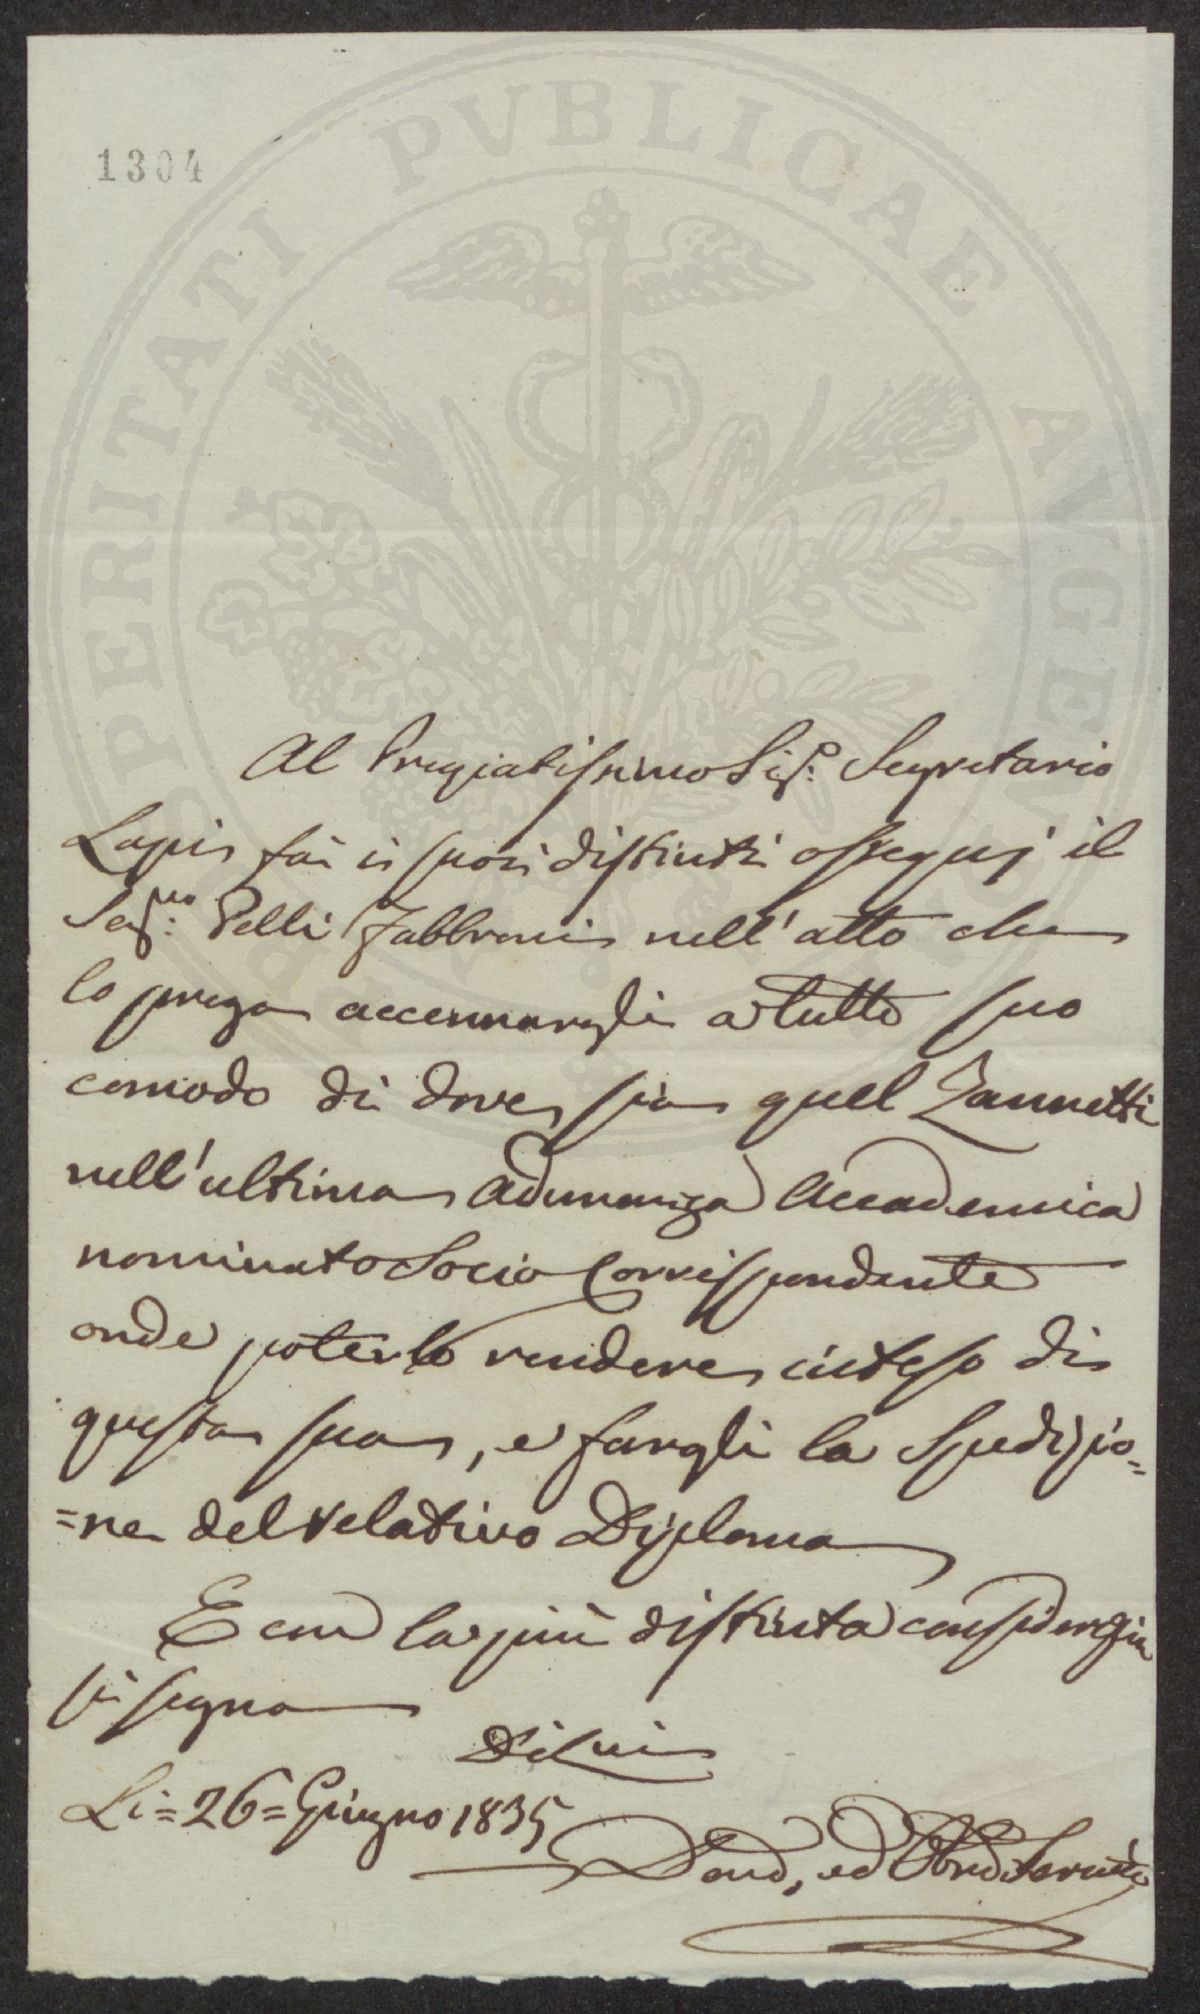 PROSPERITATI PVBLICAE AVGENDAE
1304
Al Pregiatissimo Sig.e Segretario
Lapi fa i suoi distinti ossequj il
Seg.rio Pelli Fabbroni nell'atto che
lo prega accennargli a tutto suo
comodo di dove sia quel Zannetti
nell'ultima Adunanza Accademica
nominato Socio Corrispondente
onde poterlo rendere inteso di
questa sua, e fargli la Spedizio=
=ne del relativo Diploma
E con la più distinta considerazione
si segna
Di Lui
Li = 26 = Giugno 1835
Devo, ed Obbo Servite